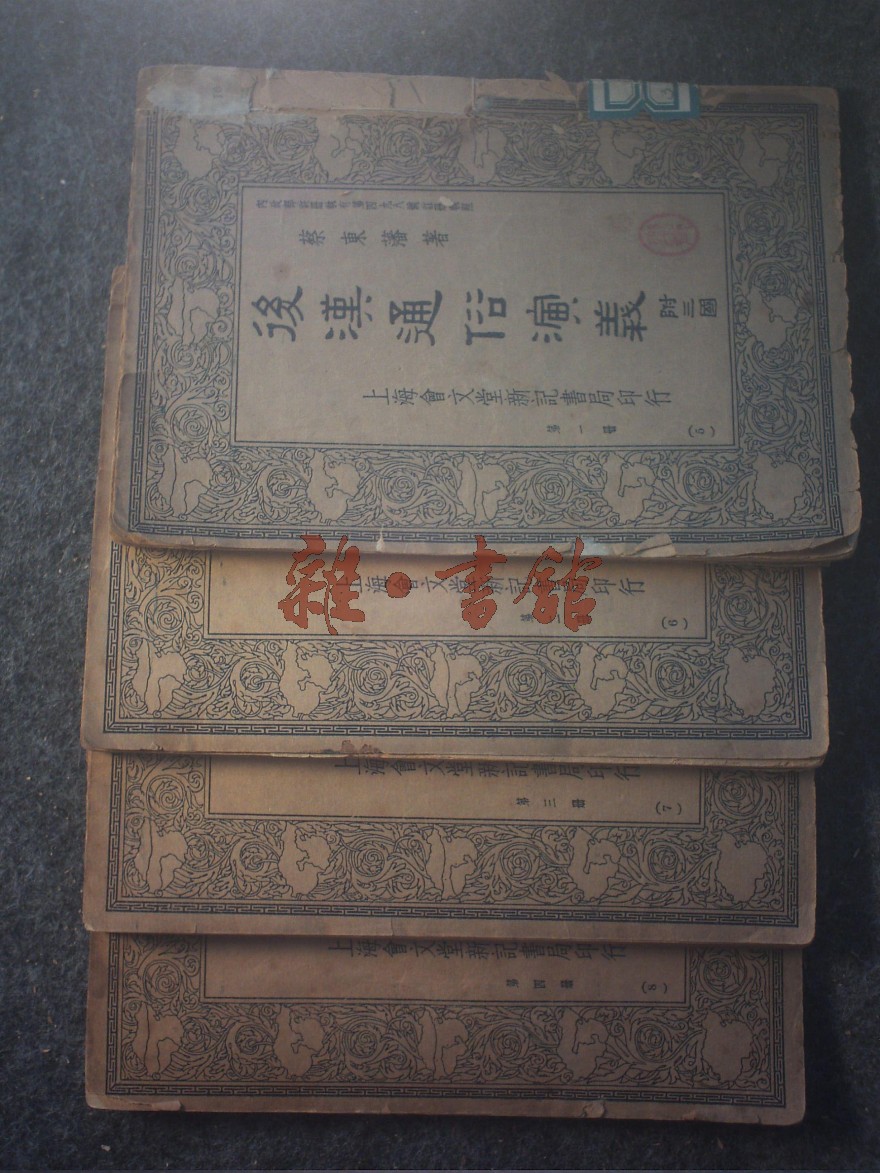 蔡東藩著
後漢通俗演義 附三國
上海會文堂新記書局印行
第一冊 (5)
上海會文堂新記書局印行
(6)
雜·書館
上海會文堂新記書局印行
第三冊 (7)
上海會文堂新記書局印行
第四冊 (8)